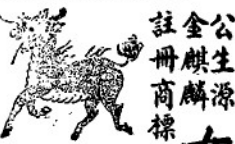 公生源
金麒麟
註冊商標